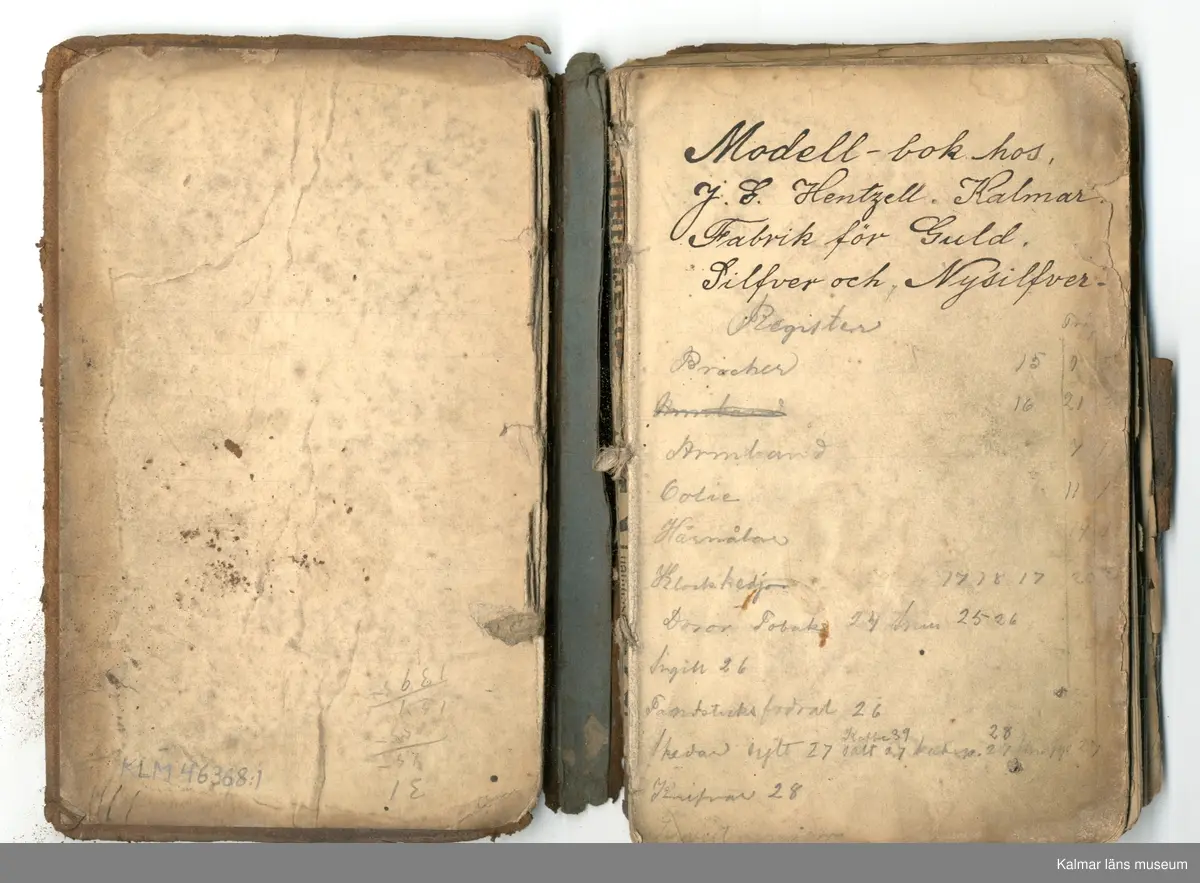 KLM 46368:1
31
Modell-bok hos,
J. E. Hentzell. Kalmar.
Fabrik för Guld.
Silfver och, Nysilfver-
Register
Brocher 15
16 21
Armband 7
Colie 11
Hårnålar
Klockkedjor 17 18 17
Dosor Tobak 24 Snus 25-26
Sigill 26
Tändsticksfodral 26
Skedar sylt 27 salt 27 28 27
Knifvar 28
Kalmar läns museum